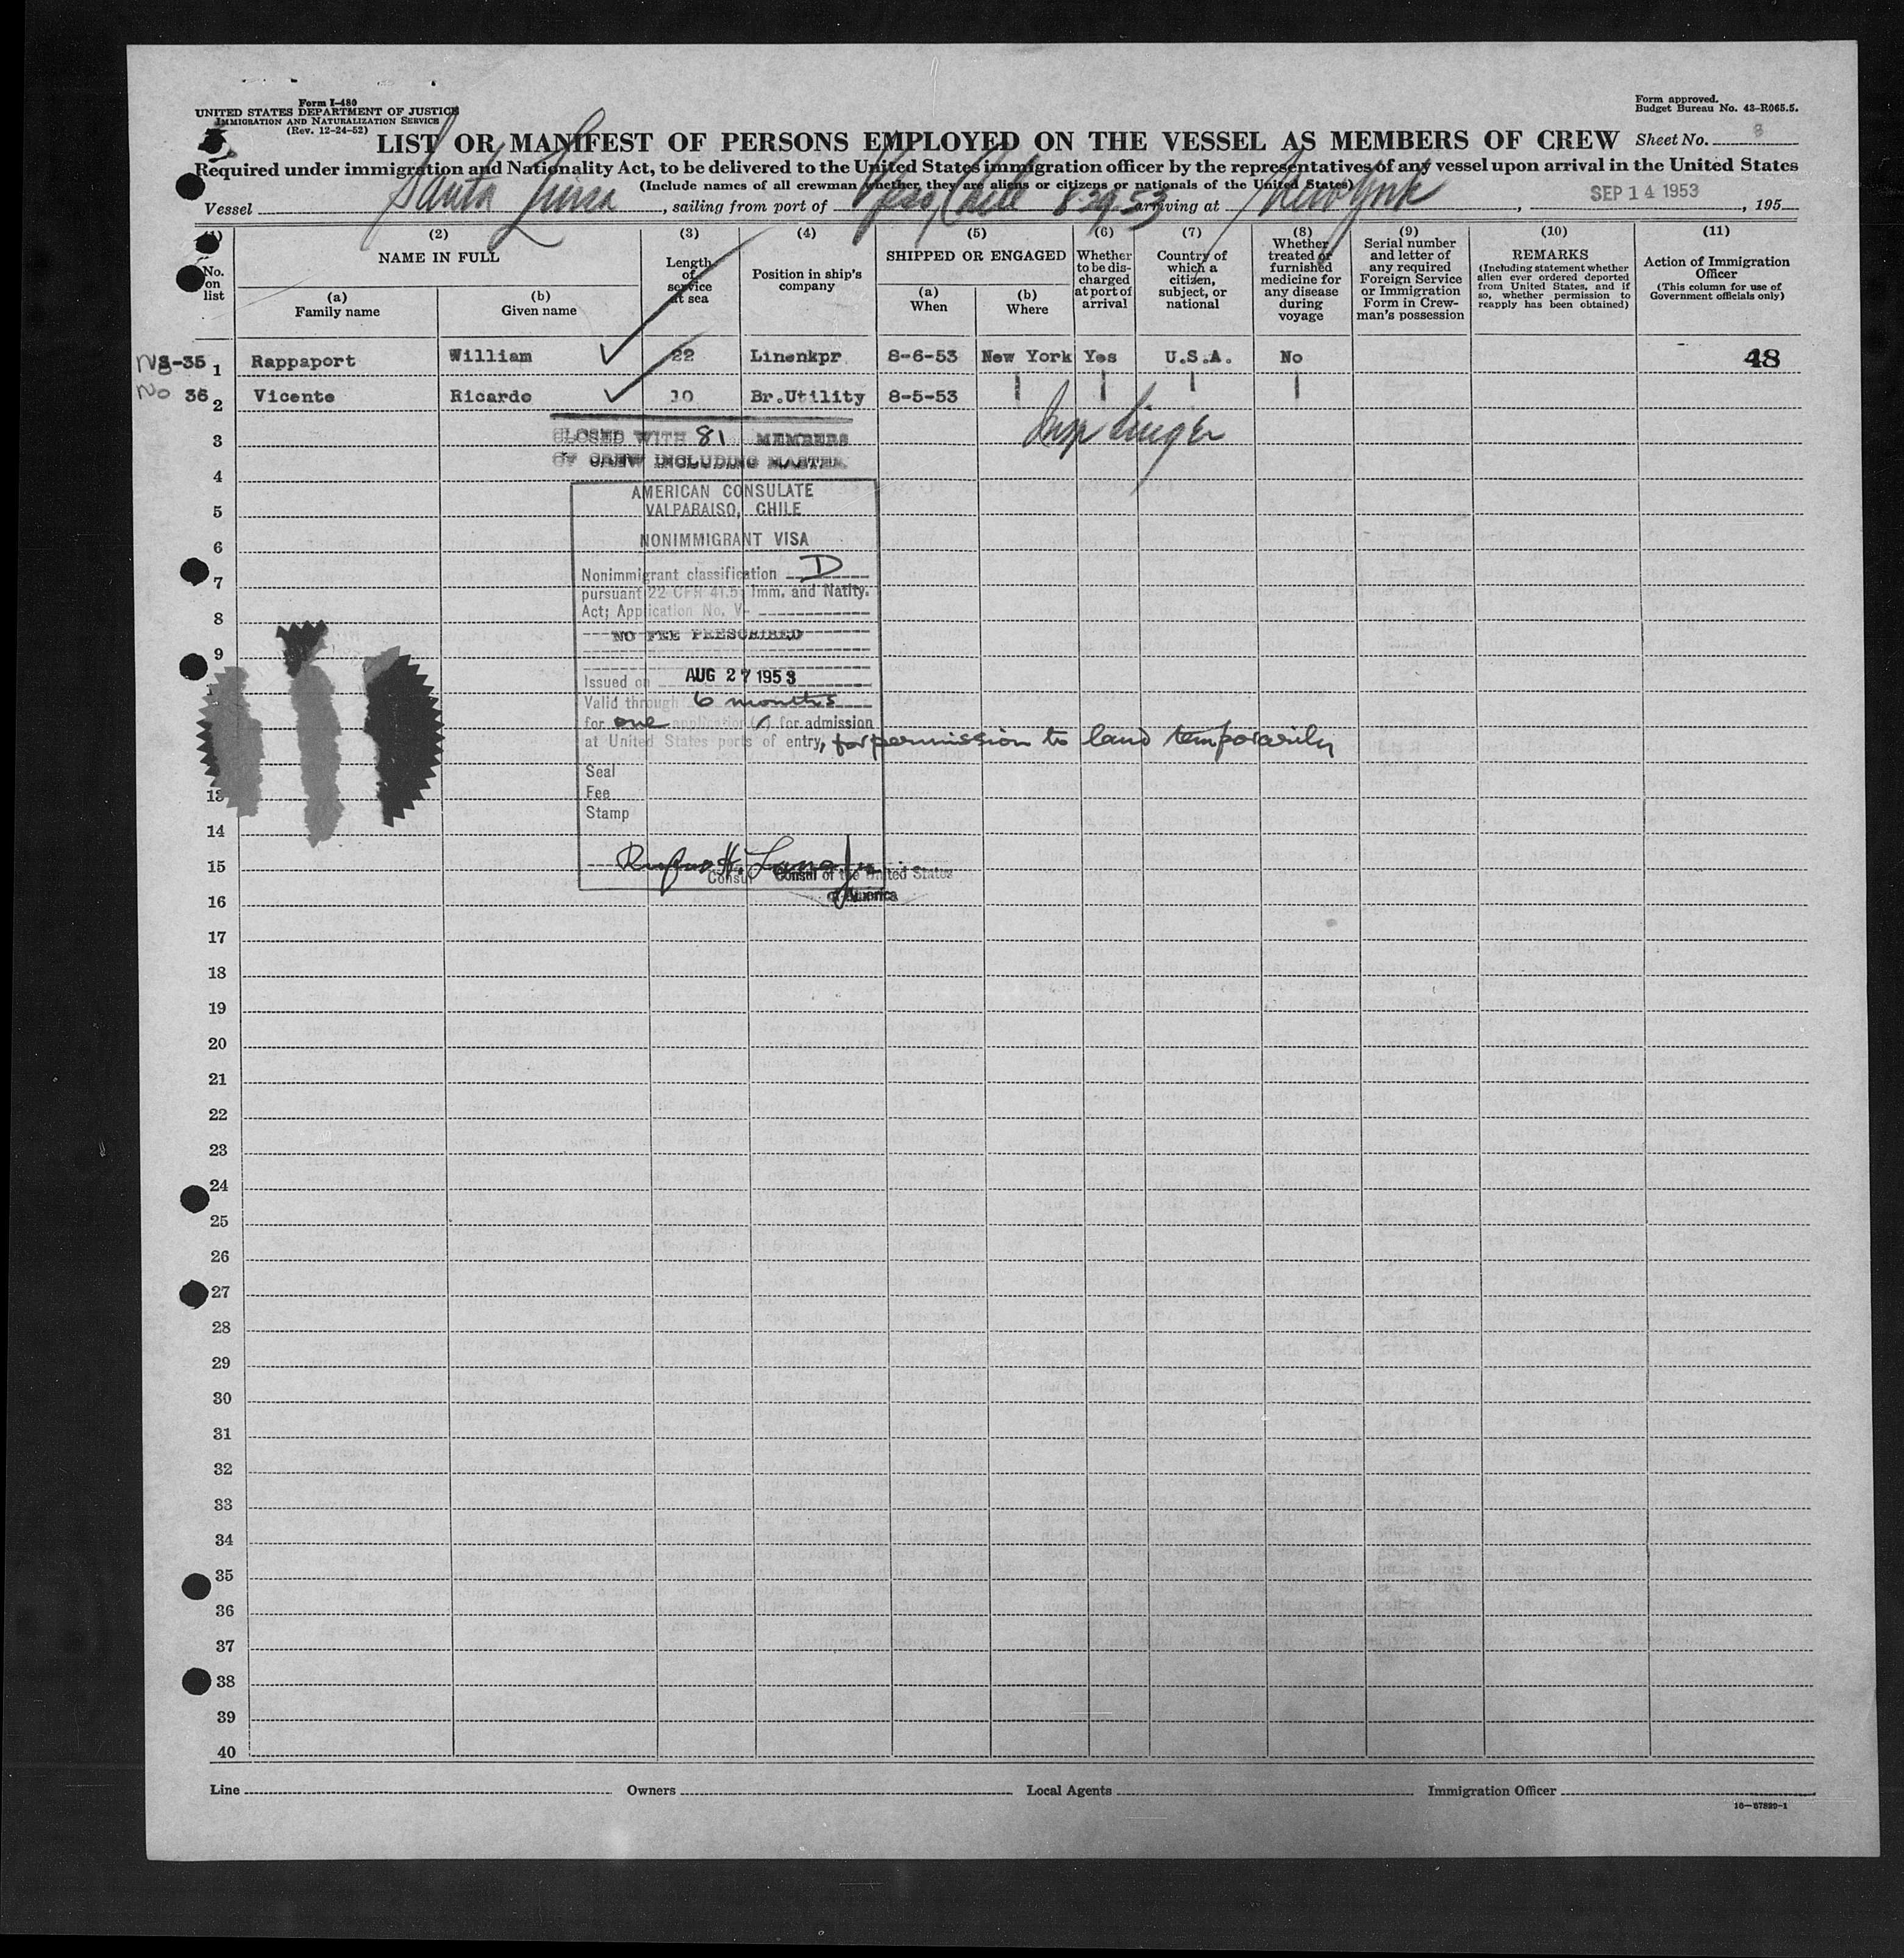 Form I-480
UNITED STATES DEPARTMENT OF JUSTICE
IMMIGRATION AND NATURALIZATION SERVICE
(Rev. 12-24-52)
Form approved.
Budget Bureau No. 43-R065.5.
LIST OR MANIFEST OF PERSONS EMPLOYED ON THE VESSEL AS MEMBERS OF CREW
Sheet No. 8
Required under immigration and Nationality Act, to be delivered to the United States immigration officer by the representatives of any vessel upon arrival in the United States
(Include names of all crewman whether they are aliens or citizens or nationals of the United States)
Vessel Santa Luisa, sailing from port of Chile 8-29-53 arriving at New York, SEP 14 1953, 195
(1) (2) (3) (4) (5) (6) (7) (8) (9) (10) (11)
No. on list
NAME IN FULL
(a) Family name
(b) Given name
Length of service at sea
Position in ship's company
SHIPPED OR ENGAGED
(a) When
(b) Where
Whether to be discharged at port of arrival
Country of which a citizen, subject, or national
Whether treated or furnished medicine for any disease during voyage
Serial number and letter of any required Foreign Service or Immigration Form in Crewman's possession
REMARKS
(Including statement whether alien ever ordered deported from United States, and if so, whether permission to reapply has been obtained)
Action of Immigration Officer
(This column for use of Government officials only)
8-35 1 Rappaport William 22 Linenkpr 8-6-53 New York Yes U.S.A. No 48
No 36 2 Vicente Ricardo 10 Br.Utility 8-5-53
3
CLOSED WITH 81 MEMBERS
OF CREW INCLUDING MASTER
4
AMERICAN CONSULATE
5
VALPARAISO, CHILE
6
NONIMMIGRANT VISA
7
Nonimmigrant classification D
pursuant 22 CFR 41.5; Imm. and Natlty.
Act; Application No. V-
8
NO FEE PRESCRIBED
9
Issued on AUG 27 1953
Valid through 6 months
for one application(s) for admission
at United States ports of entry, for permission to land temporarily
Seal
Fee
13
Stamp
14
Rufus H. Lane Jr
15
Consul Consul of the United States
of America
16
17
18
19
20
21
22
23
24
25
26
27
28
29
30
31
32
33
34
35
36
37
38
39
40
Line Owners Local Agents Immigration Officer
16-67829-1